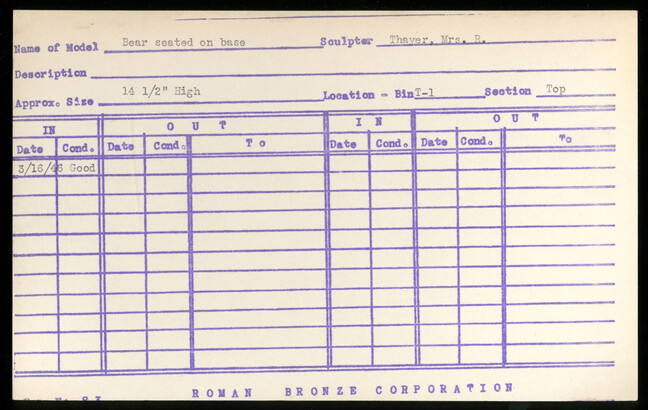 Name of Model Bear seated on base Sculptor Thayer, Mrs. R.
Description
Approx. Size 14 1/2" High Location - Bin T-1 Section Top
IN OUT IN OUT
Date Cond. Date Cond. To Date Cond. Date Cond. To
3/16/46 Good
ROMAN BRONZE CORPORATION